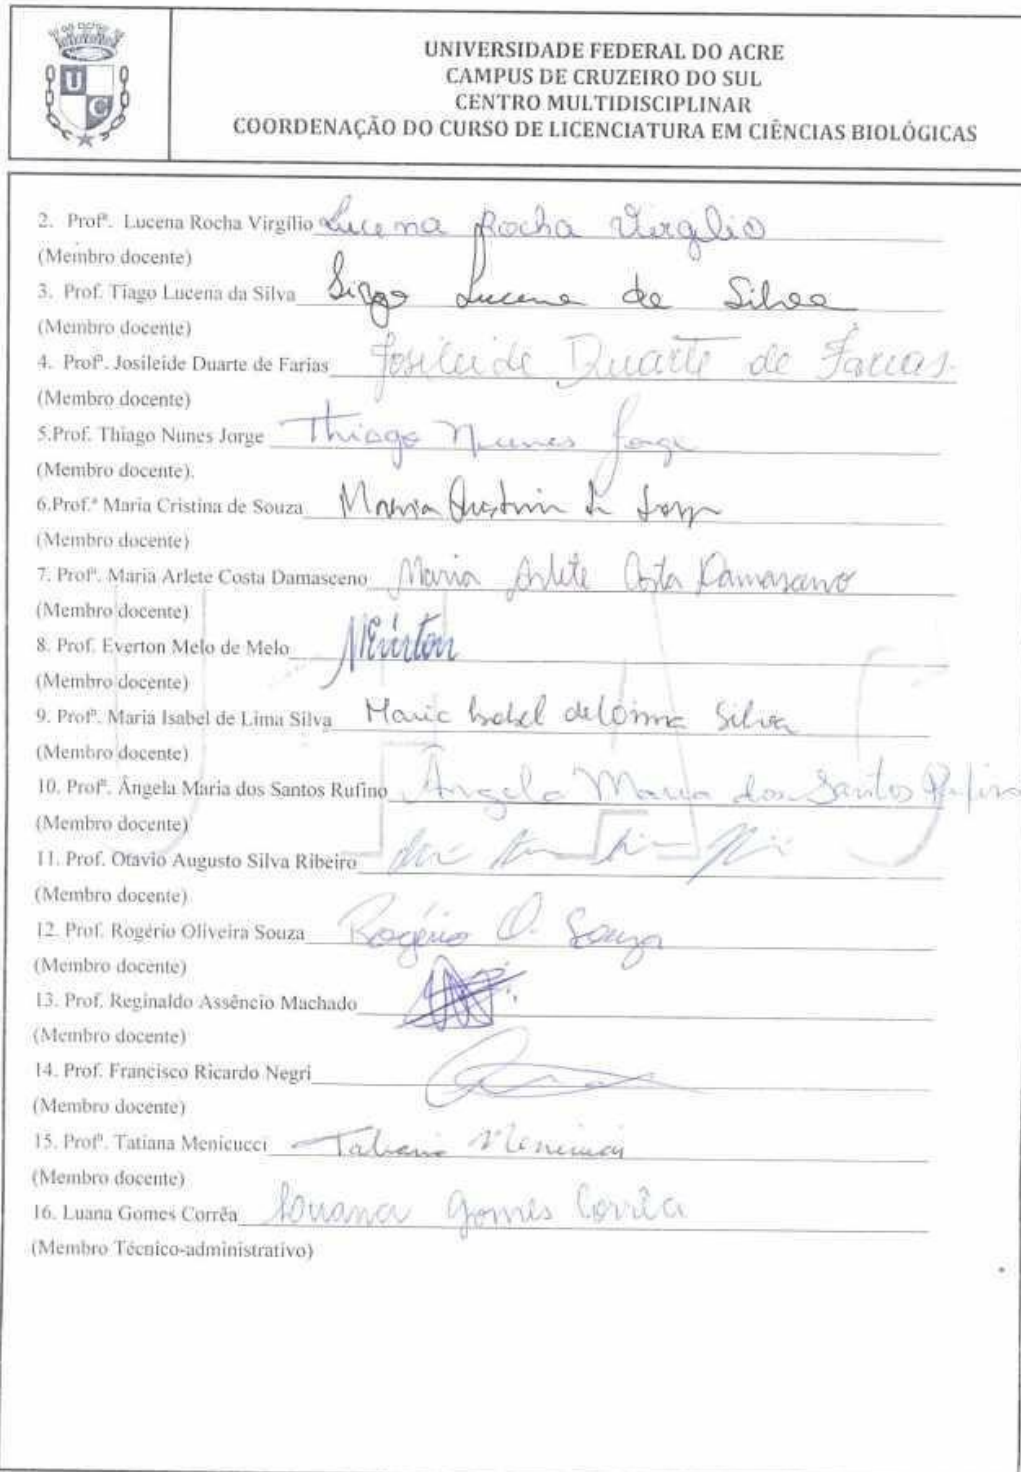 UNIVERSIDADE FEDERAL DO ACRE
CAMPUS DE CRUZEIRO DO SUL
CENTRO MULTIDISCIPLINAR
COORDENAÇÃO DO CURSO DE LICENCIATURA EM CIÊNCIAS BIOLÓGICAS
U
C
2. Profª. Lucena Rocha Virgílio Lucena Rocha Virgilio
(Membro docente)
3. Prof. Tiago Lucena da Silva Tiago Lucena da Silva
(Membro docente)
4. Profª. Josileide Duarte de Farias Josileide Duarte de Farias.
(Membro docente)
5.Prof. Thiago Nunes Jorge Thiago Nunes Jorge
(Membro docente).
6.Prof.ª Maria Cristina de Souza Maria Cristina de Souza
(Membro docente)
7. Profª. Maria Arlete Costa Damasceno Maria Arlete Costa Damasceno
(Membro docente)
8. Prof. Everton Melo de Melo
(Membro docente)
9. Profª. Maria Isabel de Lima Silva Maria Isabel de Lima Silva
(Membro docente)
10. Profª. Ângela Maria dos Santos Rufino Ângela Maria dos Santos Rufino
(Membro docente)
11. Prof. Otavio Augusto Silva Ribeiro
(Membro docente)
12. Prof. Rogério Oliveira Souza Rogério O. Souza
(Membro docente)
13. Prof. Reginaldo Assêncio Machado
(Membro docente)
14. Prof. Francisco Ricardo Negri
(Membro docente)
15. Profª. Tatiana Menicucci Tatiana Menicucci
(Membro docente)
16. Luana Gomes Corrêa Louana Gomes Corrêa
(Membro Técnico-administrativo)